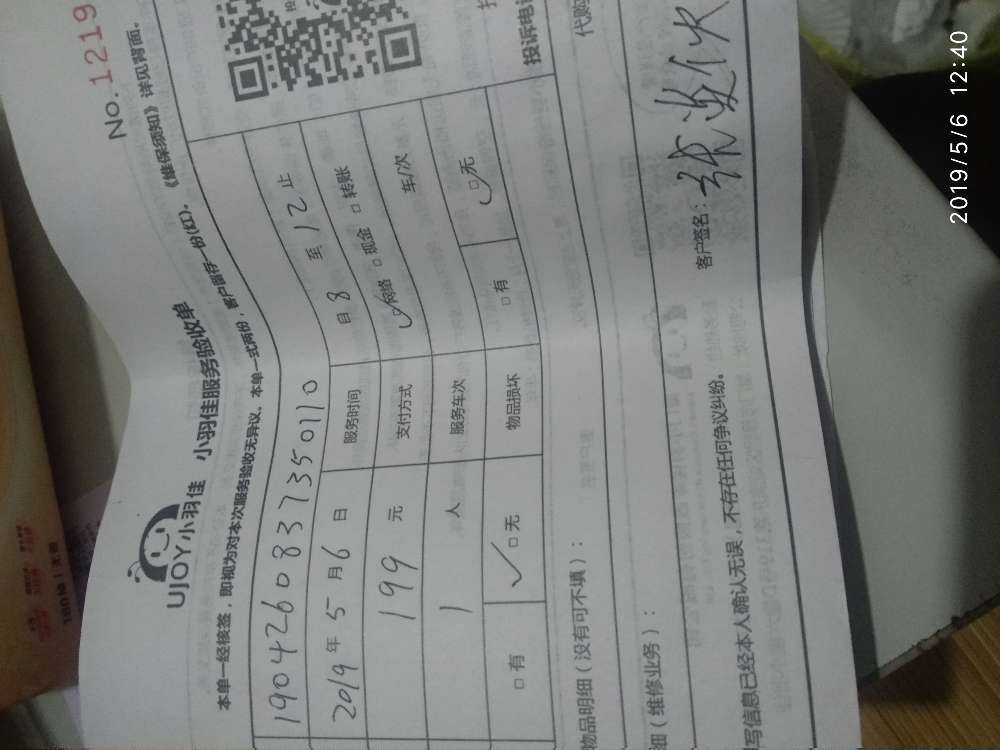 No. 1219
UJOY小羽佳 小羽佳服务验收单
本单一经核签，即视为对本次服务验收无异议、本单一式两份，客户留存一份(红)。《维保须知》详见背面。
1904260837350110
2019年5月6日 服务时间 自8至12止
199元 支付方式 ☑网络 □现金 □转账
1人 服务车次 车/次
□有 ☑无 物品损坏 □有 ☑无
投诉电
物品明细（没有可不填）： 代购
细（维修业务）：
写信息已经本人确认无误，不存在任何争议纠纷。 客户签名：
2019/5/6 12:40